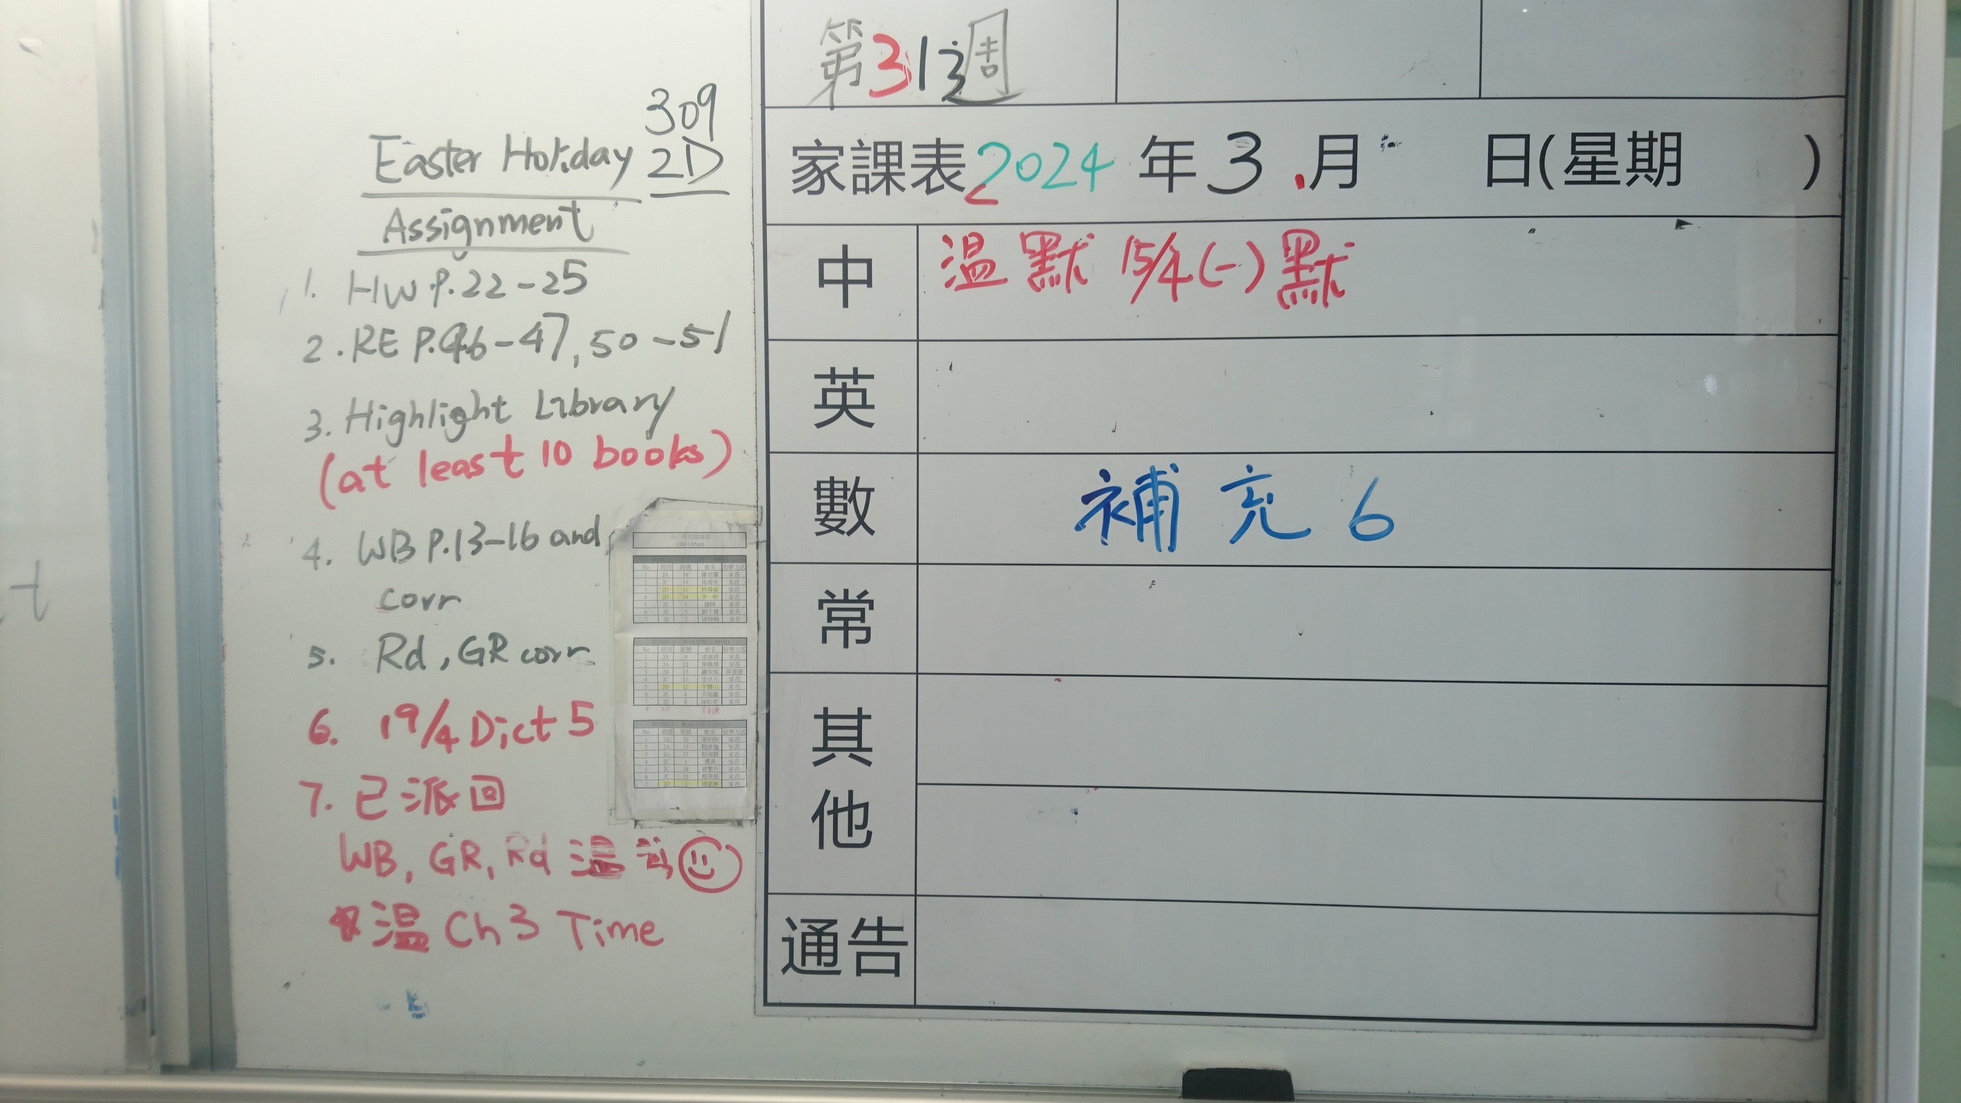 309
Easter Holiday 2D
Assignment
1. HW P.22-25
2. RE P.46-47, 50-51
3. Highlight Library
(at least 10 books)
4. WB P.13-16 and
corr
5. Rd, GR corr
6. 19/4 Dict 5
7. 已派回
WB, GR, Rd 温
温 Ch 3 Time
第313週
家課表2024年3月 日(星期 )
中 温默 15/4(一)默
英
數 補充6
常
其他
通告